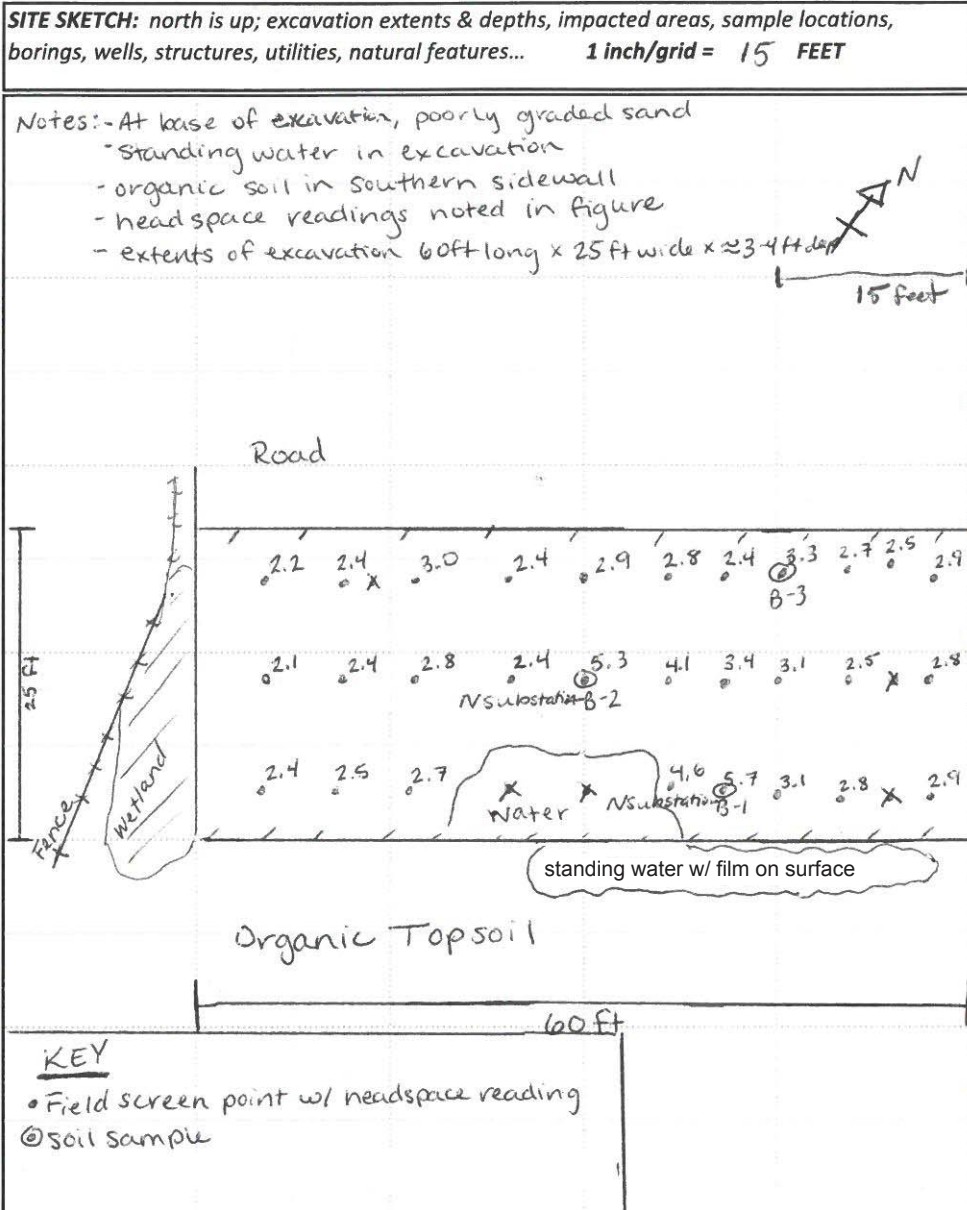 SITE SKETCH: north is up; excavation extents & depths, impacted areas, sample locations,
borings, wells, structures, utilities, natural features... 1 inch/grid = 15 FEET
Notes: - At base of excavation, poorly graded sand
- Standing water in excavation
- organic soil in southern sidewall
- headspace readings noted in figure
- extents of excavation 60ft long x 25 ft wide x ≈3-4 ft dep
N
15 feet
Road
2.2 2.4 x 3.0 2.4 2.9 2.8 2.4 3.3 2.7 2.5 2.9
B-3
25 ft
2.1 2.4 2.8 2.4 5.3 4.1 3.4 3.1 2.5 x 2.8
Nsubstation-B-2
Fence
Wetland
2.4 2.5 2.7 x x 4.6 5.7 3.1 2.8 x 2.9
Water
Nsubstation-B-1
standing water w/ film on surface
Organic Topsoil
60 ft
KEY
• Field screen point w/ headspace reading
◎ soil sample